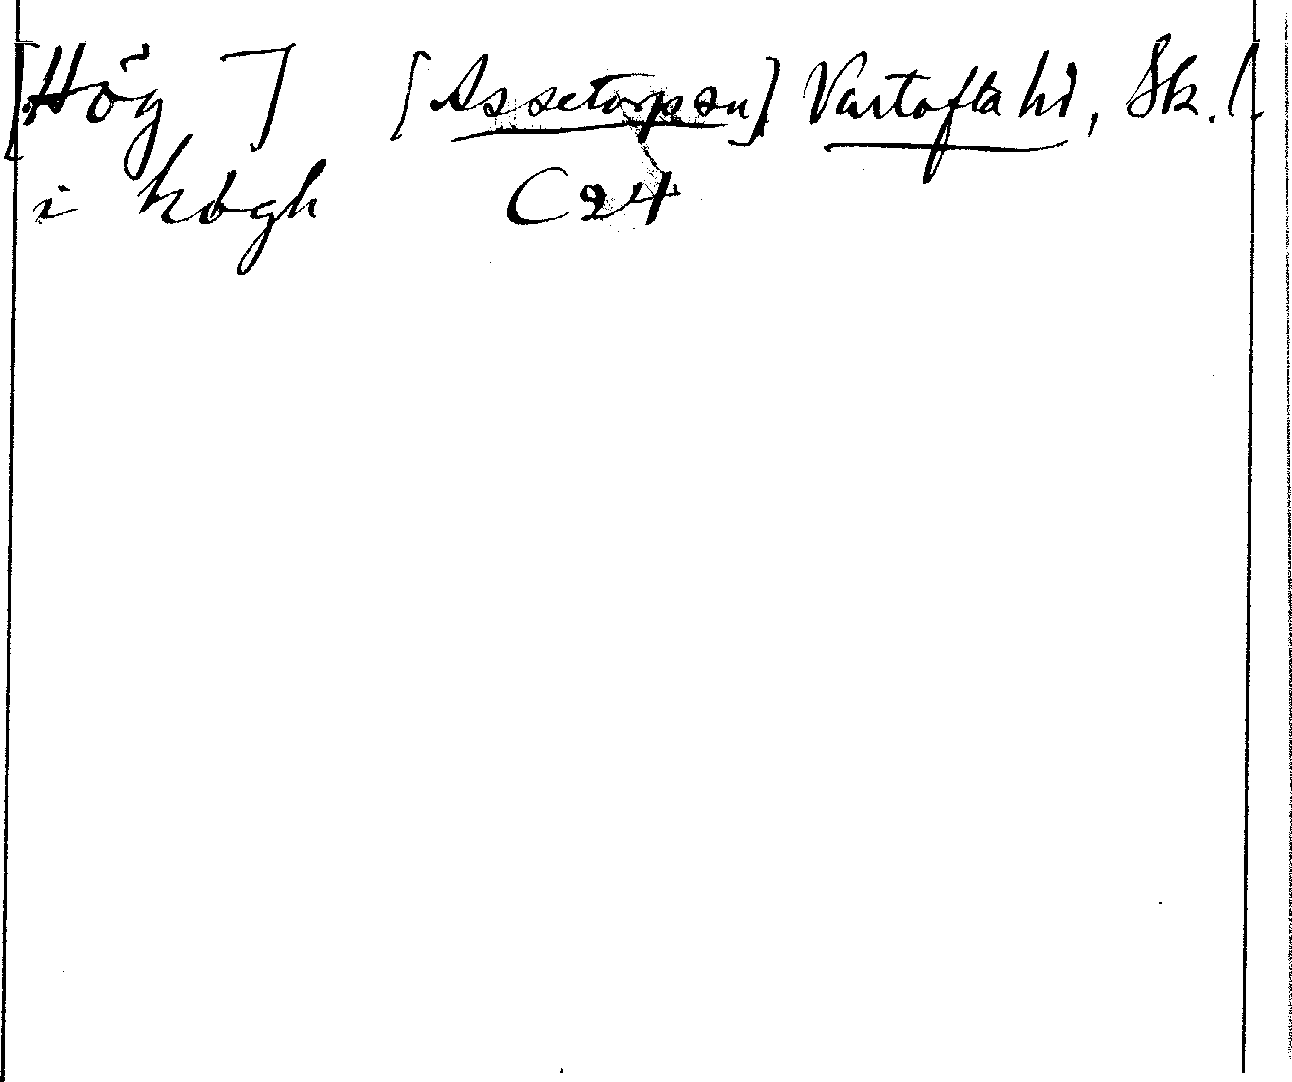 [Hög] [Assetorp sn] Vartofta hd, Sk. l.
i högh C 24